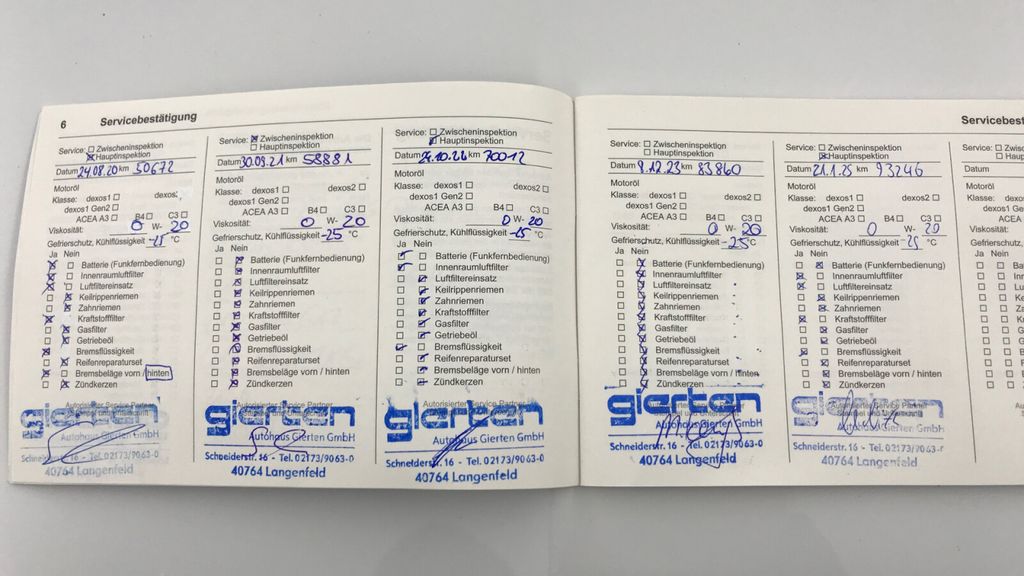 6 Servicebestätigung
Service: Zwischeninspektion
Hauptinspektion
Datum 24.08.20 km 50672
Motoröl
Klasse: dexos1 dexos2
dexos1 Gen2
ACEA A3 B4 C3
Viskosität: 0 W- 20
Gefrierschutz, Kühlflüssigkeit -25 °C
Ja Nein
Batterie (Funkfernbedienung)
Innenraumluftfilter
Luftfiltereinsatz
Keilrippenriemen
Zahnriemen
Kraftstofffilter
Gasfilter
Getriebeöl
Bremsflüssigkeit
Reifenreparaturset
Bremsbeläge vorn / hinten
Zündkerzen
gierten
Autohaus Gierten GmbH
Schneiderstr. 16 - Tel. 02173/9063-0
40764 Langenfeld
Service: Zwischeninspektion
Hauptinspektion
Datum 30.09.21 km 58881
Motoröl
Klasse: dexos1 dexos2
dexos1 Gen2
ACEA A3 B4 C3
Viskosität: 0 W- 20
Gefrierschutz, Kühlflüssigkeit -25 °C
Ja Nein
Batterie (Funkfernbedienung)
Innenraumluftfilter
Luftfiltereinsatz
Keilrippenriemen
Zahnriemen
Kraftstofffilter
Gasfilter
Getriebeöl
Bremsflüssigkeit
Reifenreparaturset
Bremsbeläge vorn / hinten
Zündkerzen
Autorisierter Service Partner
gierten
Autohaus Gierten GmbH
Schneiderstr. 16 - Tel. 02173/9063-0
40764 Langenfeld
Service: Zwischeninspektion
Hauptinspektion
Datum km 70012
Motoröl
Klasse: dexos1 dexos2
dexos1 Gen2
ACEA A3 B4 C3
Viskosität: 0 W- 20
Gefrierschutz, Kühlflüssigkeit -25 °C
Ja Nein
Batterie (Funkfernbedienung)
Innenraumluftfilter
Luftfiltereinsatz
Keilrippenriemen
Zahnriemen
Kraftstofffilter
Gasfilter
Getriebeöl
Bremsflüssigkeit
Reifenreparaturset
Bremsbeläge vorn / hinten
Zündkerzen
Autorisierter Service Partner
gierten
Autohaus Gierten GmbH
Schneiderstr. 16 - Tel. 02173/9063-0
40764 Langenfeld
Servicebest
Service: Zwischeninspektion
Hauptinspektion
Datum 8.12.23 km 83860
Motoröl
Klasse: dexos1 dexos2
dexos1 Gen2
ACEA A3 B4 C3
Viskosität: 0 W- 20
Gefrierschutz, Kühlflüssigkeit -25 °C
Ja Nein
Batterie (Funkfernbedienung)
Innenraumluftfilter
Luftfiltereinsatz
Keilrippenriemen
Zahnriemen
Kraftstofffilter
Gasfilter
Getriebeöl
Bremsflüssigkeit
Reifenreparaturset
Bremsbeläge vorn / hinten
Zündkerzen
gierten
Autohaus Gierten GmbH
Schneiderstr. 16 - Tel. 02173/9063-0
40764 Langenfeld
Service: Zwischeninspektion
Hauptinspektion
Datum 21.1.25 km 93246
Motoröl
Klasse: dexos1 dexos2
dexos1 Gen2
ACEA A3 B4 C3
Viskosität: 0 W- 20
Gefrierschutz, Kühlflüssigkeit -25 °C
Ja Nein
Batterie (Funkfernbedienung)
Innenraumluftfilter
Luftfiltereinsatz
Keilrippenriemen
Zahnriemen
Kraftstofffilter
Gasfilter
Getriebeöl
Bremsflüssigkeit
Reifenreparaturset
Bremsbeläge vorn / hinten
Zündkerzen
Autorisierter Service Partner
gierten
Autohaus Gierten GmbH
Schneiderstr. 16 - Tel. 02173/9063-0
40764 Langenfeld
Service:
Datum
Motoröl
Klasse:
Viskosität:
Gefrierschutz
Ja Nein